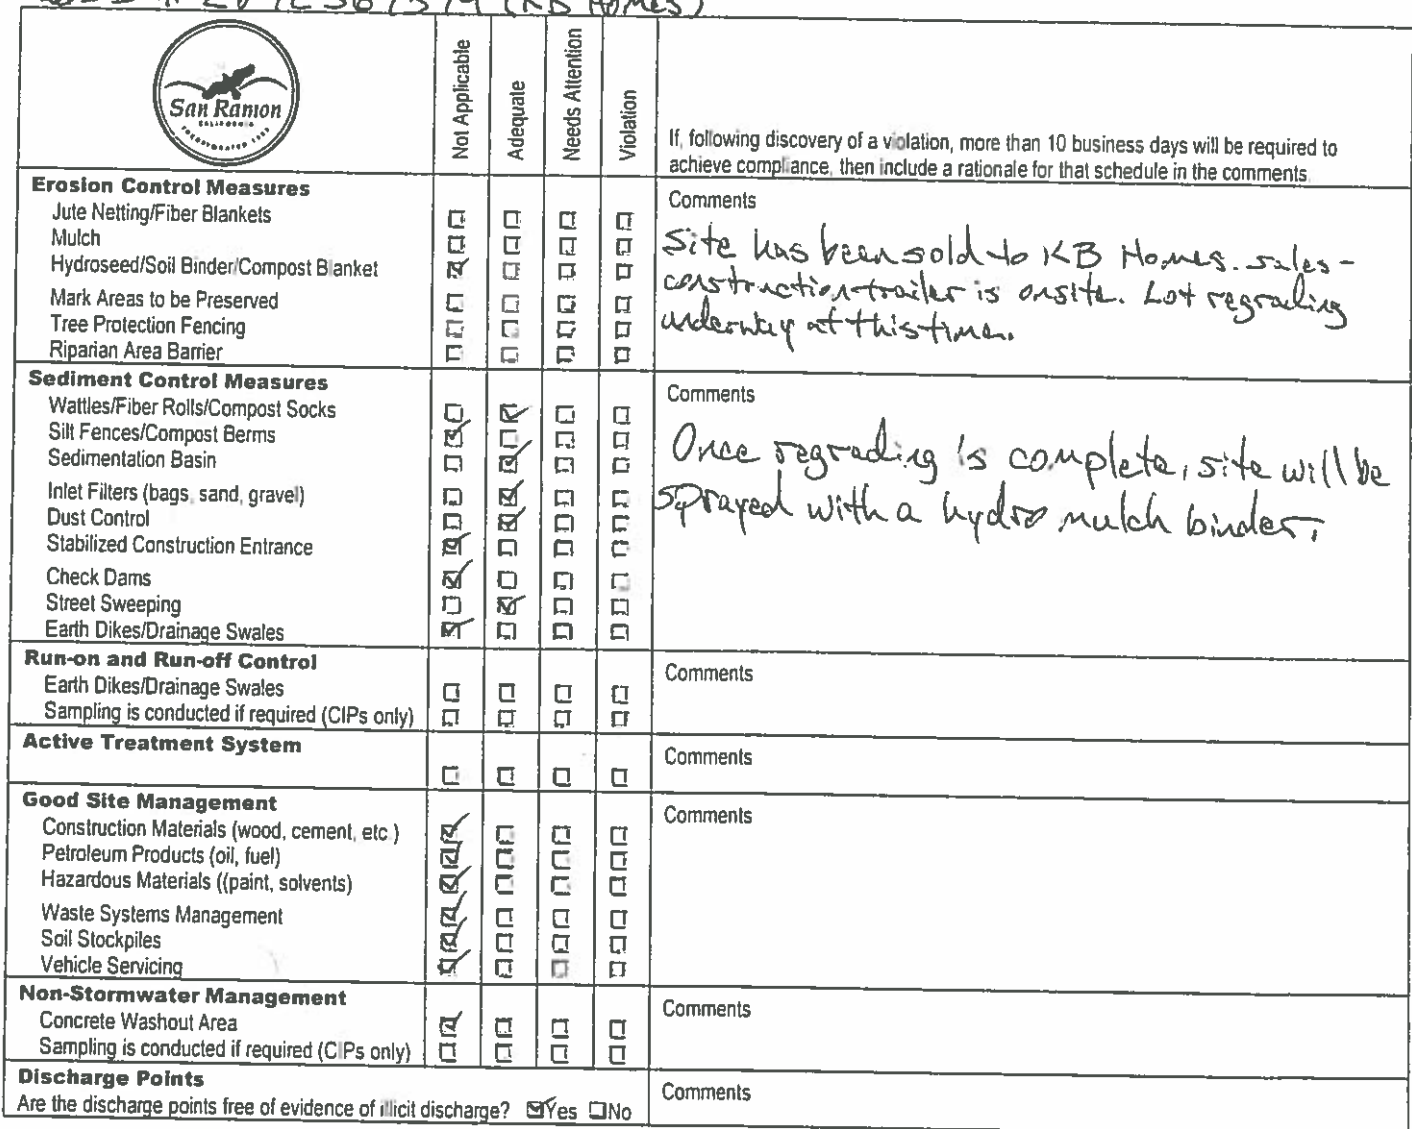 (KB Homes)
San Ramon
CALIFORNIA
Not Applicable
Adequate
Needs Attention
Violation
If, following discovery of a violation, more than 10 business days will be required to
achieve compliance, then include a rationale for that schedule in the comments
Erosion Control Measures
Jute Netting/Fiber Blankets
Mulch
Hydroseed/Soil Binder/Compost Blanket
Mark Areas to be Preserved
Tree Protection Fencing
Riparian Area Barrier
Comments
Site has been sold to KB Homes. sales-
construction trailer is onsite. Lot regrading
underway at this time.
Sediment Control Measures
Wattles/Fiber Rolls/Compost Socks
Silt Fences/Compost Berms
Sedimentation Basin
Inlet Filters (bags, sand, gravel)
Dust Control
Stabilized Construction Entrance
Check Dams
Street Sweeping
Earth Dikes/Drainage Swales
Comments
Once regrading is complete, site will be
sprayed with a hydro mulch binder.
Run-on and Run-off Control
Earth Dikes/Drainage Swales
Sampling is conducted if required (CIPs only)
Comments
Active Treatment System
Comments
Good Site Management
Construction Materials (wood, cement, etc )
Petroleum Products (oil, fuel)
Hazardous Materials ((paint, solvents)
Waste Systems Management
Soil Stockpiles
Vehicle Servicing
Comments
Non-Stormwater Management
Concrete Washout Area
Sampling is conducted if required (CIPs only)
Comments
Discharge Points
Are the discharge points free of evidence of illicit discharge? Yes No
Comments